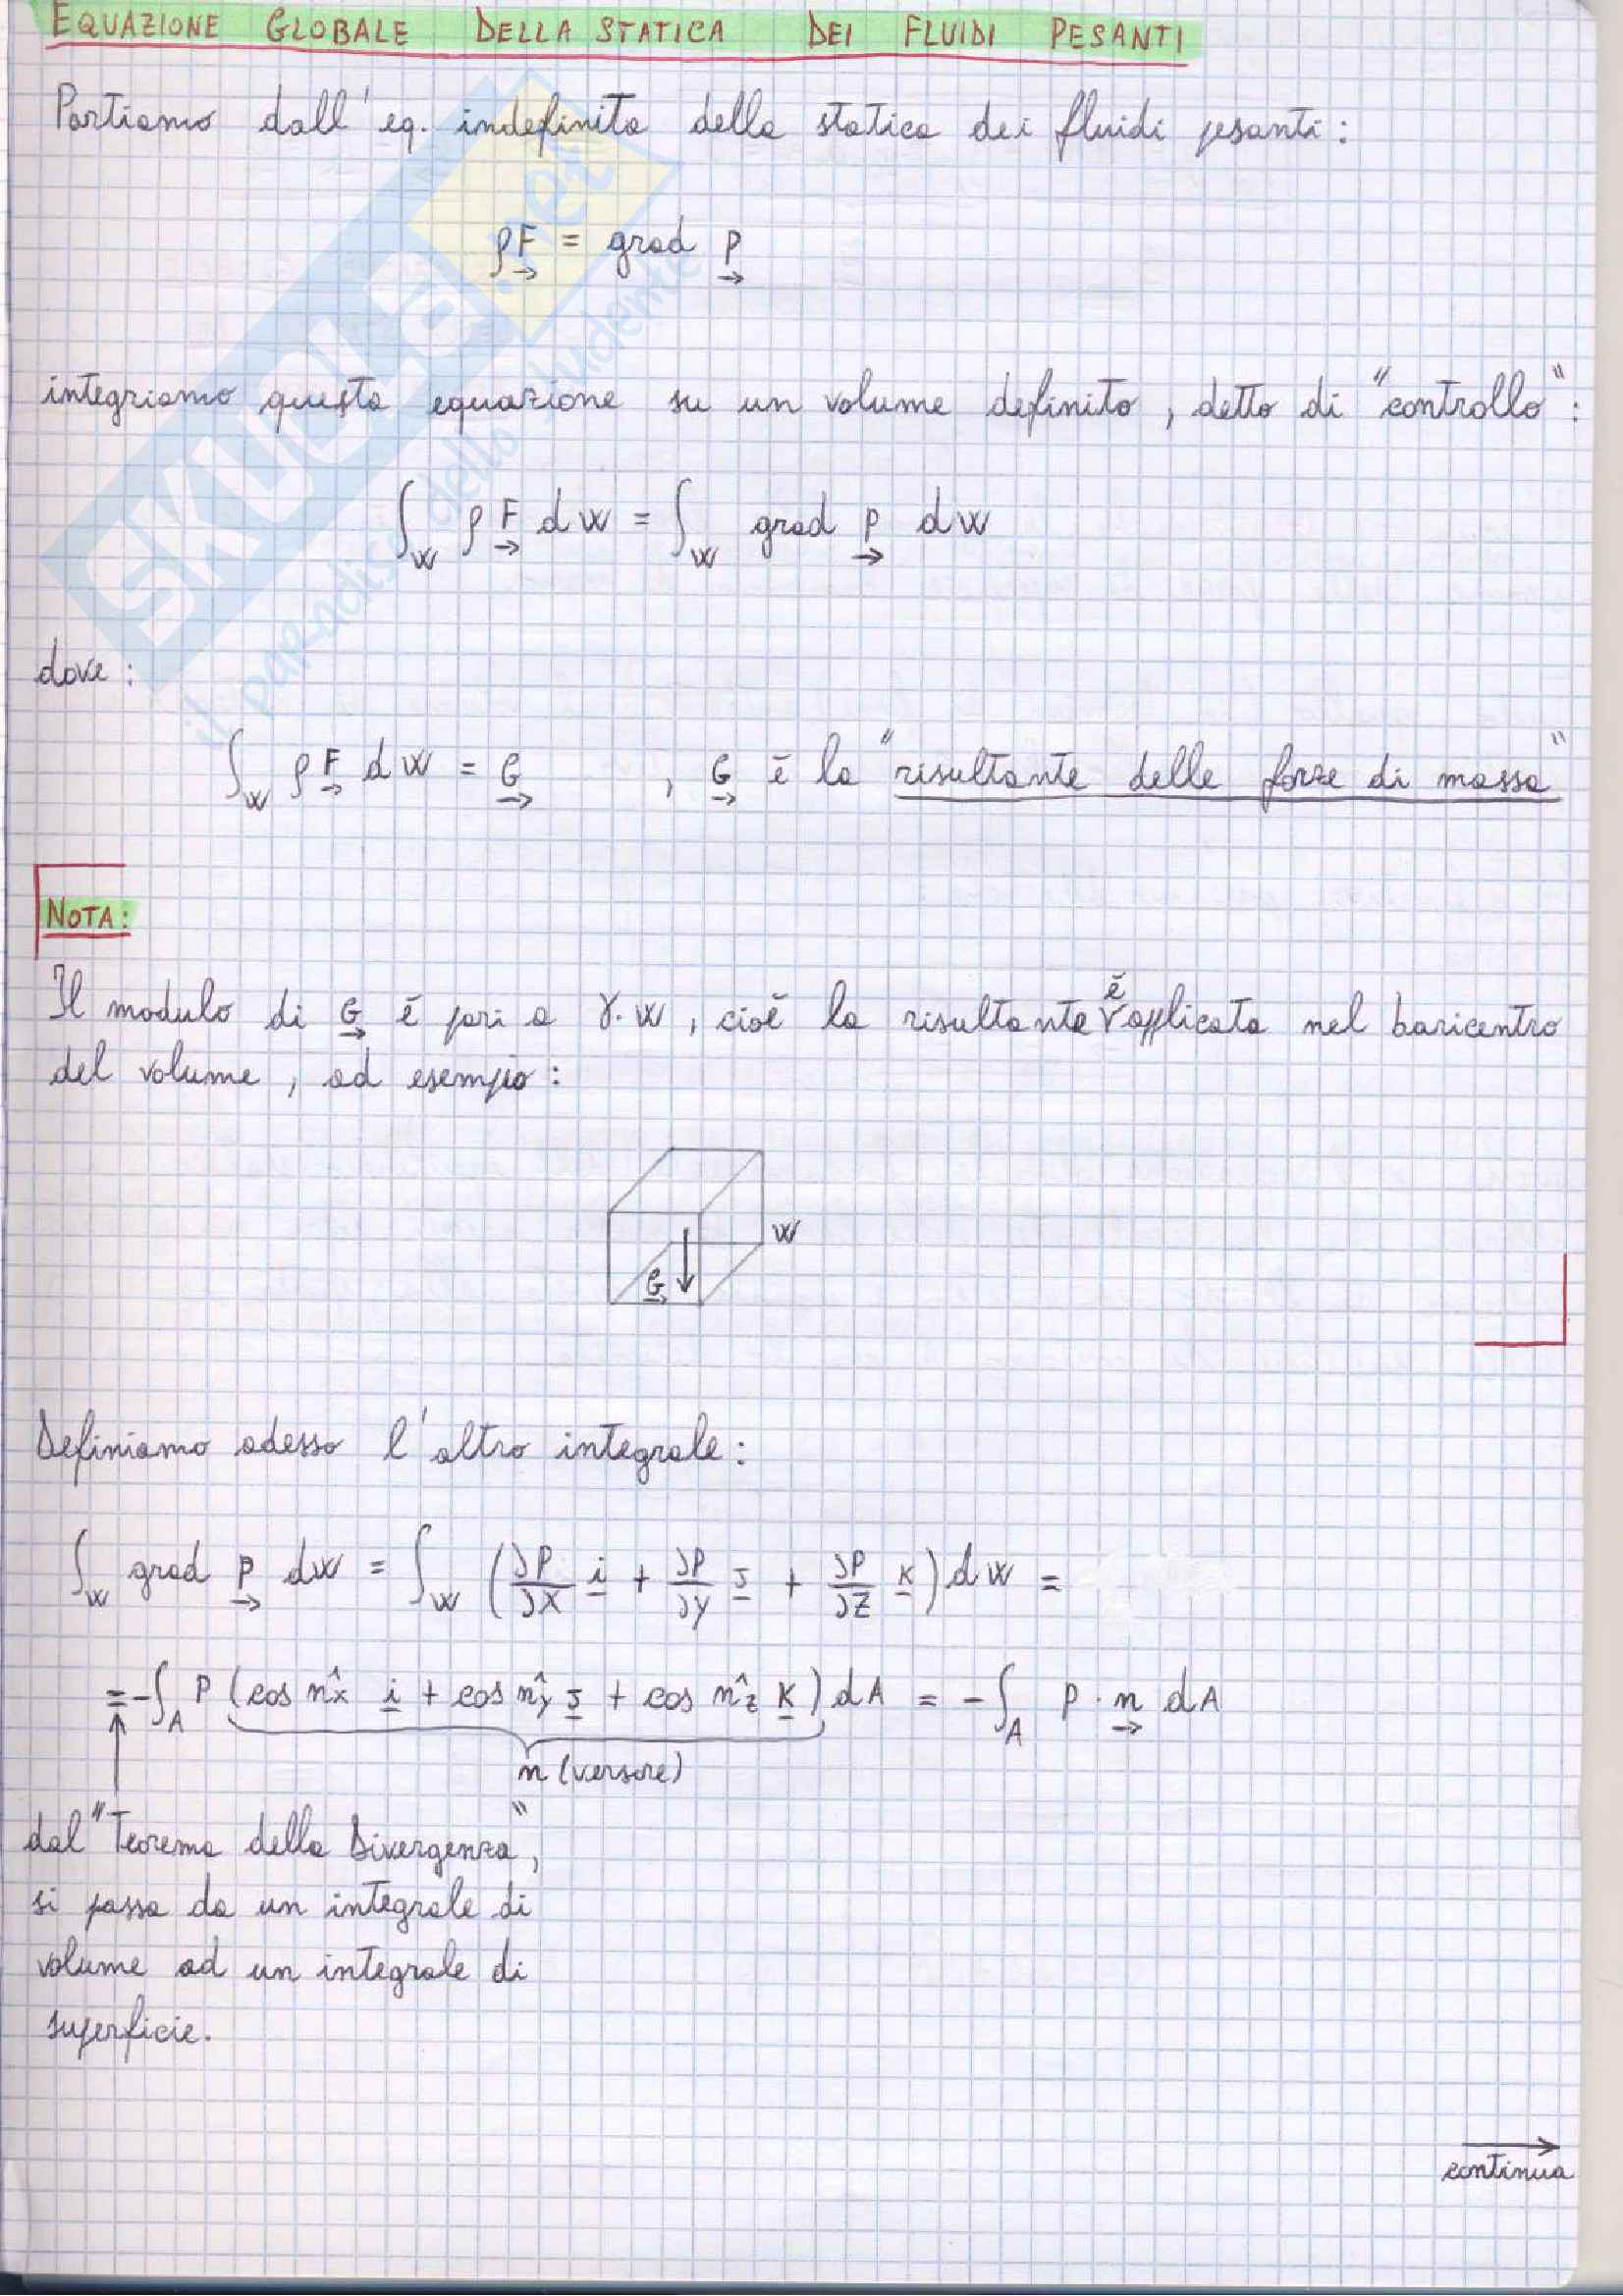 EQUAZIONE GLOBALE DELLA STATICA DEI FLUIDI PESANTI
Partiamo dall'eq. indefinita della statica dei fluidi pesanti:
ρF = grad p
integriamo questa equazione su un volume definito, detto di "controllo":
∫_W ρF dW = ∫_W grad p dW
dove:
∫_W ρF dW = G , G è la "risultante delle forze di massa"
NOTA:
Il modulo di G è pari a γ·W, cioè la risultante è applicata nel baricentro
del volume, ad esempio:
W
G
Definiamo adesso l'altro integrale:
∫_W grad p dW = ∫_W (∂P/∂X i + ∂P/∂Y j + ∂P/∂Z K) dW =
= -∫_A P (cos n̂x i + cos n̂y j + cos n̂z K) dA = -∫_A P · n dA
n (versore)
dal "Teorema della Divergenza",
si passa da un integrale di
volume ad un integrale di
superficie.
continua
SKUOLA.net
il paradiso dello studente